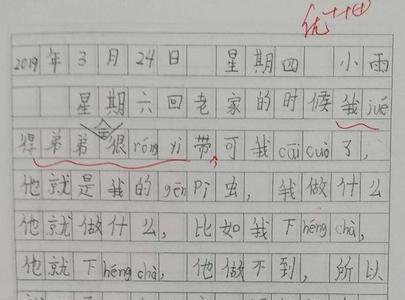 优++⊕
2019年3月24日 星期四 小雨
星期六回老家的时候我jué
得弟弟会很róng yì带,可我cāi cuò了,
他就是我的gēn pì虫,我做什么
他就做什么,比如我下héng chà,
他就下héng chà,他做不到,所以